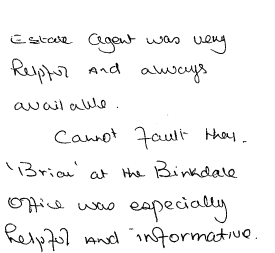 Estate Agent was very
helpful and always
available.
Cannot fault they.
'Brian' at the Birkdale
Office was especially
helpful and informative.